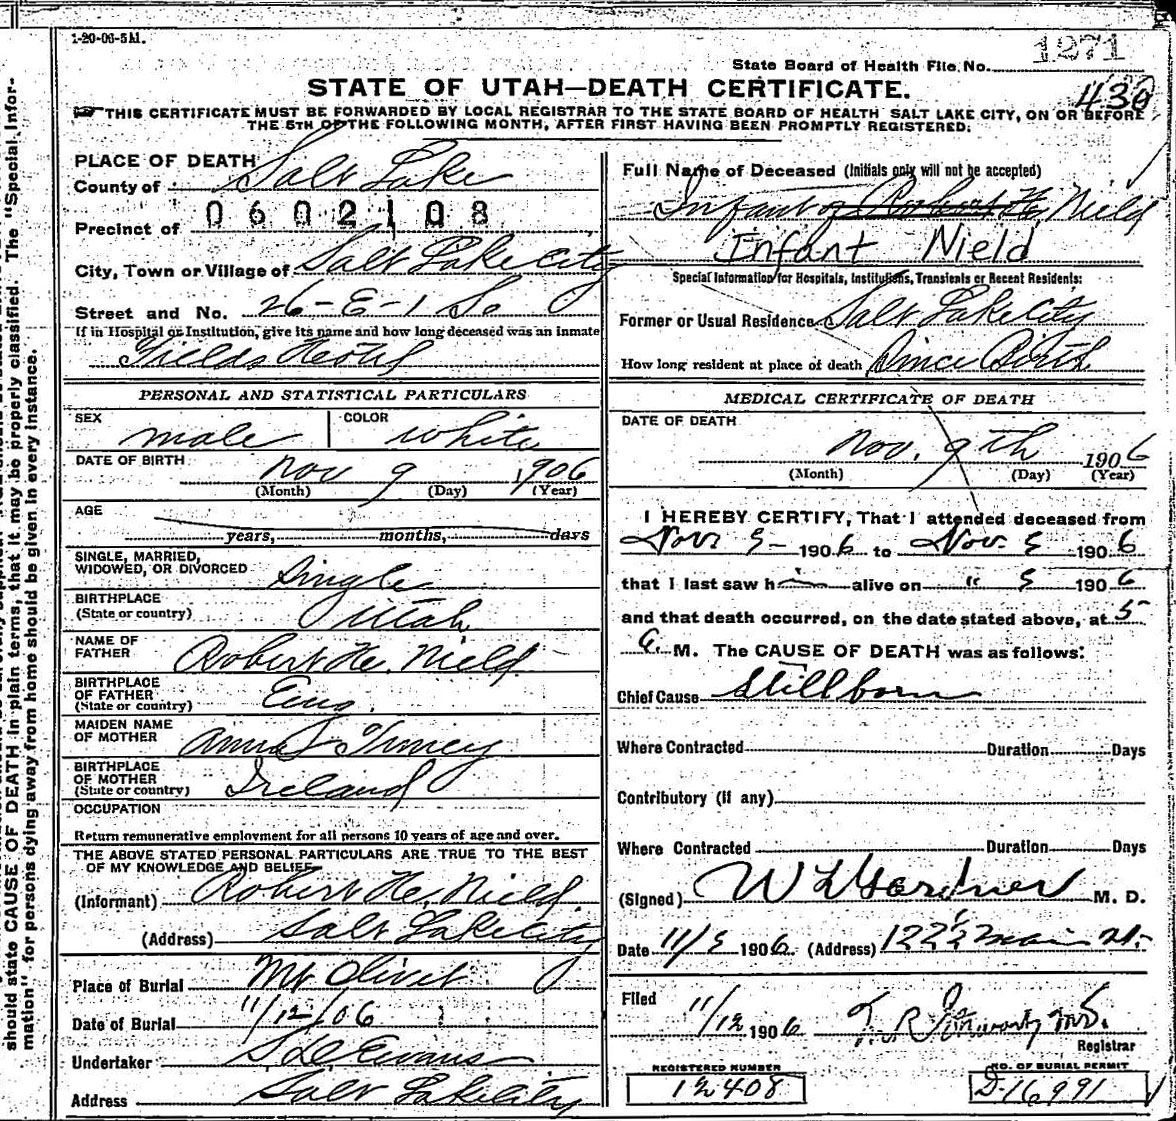 1-20-06-5M.
State Board of Health File No. 1271
STATE OF UTAH—DEATH CERTIFICATE.
430
THIS CERTIFICATE MUST BE FORWARDED BY LOCAL REGISTRAR TO THE STATE BOARD OF HEALTH SALT LAKE CITY, ON OR BEFORE
THE 5TH OF THE FOLLOWING MONTH, AFTER FIRST HAVING BEEN PROMPTLY REGISTERED.
PLACE OF DEATH
County of Salt Lake
0602108
Precinct of
City, Town or Village of Salt Lake City
Street and No. 26-E-1 So
If in Hospital or Institution, give its name and how long deceased was an inmate
Fields Hotel
PERSONAL AND STATISTICAL PARTICULARS
SEX male COLOR white
DATE OF BIRTH Nov 9 1906
(Month) (Day) (Year)
AGE
years, months, days
SINGLE, MARRIED,
WIDOWED, OR DIVORCED Single
BIRTHPLACE
(State or country) Utah
NAME OF
FATHER Robert He. Nield
BIRTHPLACE
OF FATHER
(State or country) Eng.
MAIDEN NAME
OF MOTHER
BIRTHPLACE
OF MOTHER
(State or country) Ireland
OCCUPATION
Return remunerative employment for all persons 10 years of age and over.
THE ABOVE STATED PERSONAL PARTICULARS ARE TRUE TO THE BEST
OF MY KNOWLEDGE AND BELIEF
(Informant) Robert He. Nield
(Address) Salt Lake City
Place of Burial Mt Olivet
Date of Burial 11/12/06
Undertaker Evans
Address Salt Lake City
Full Name of Deceased (Initials only will not be accepted)
Infant of Robert He. Nield
Infant Nield
Special Information for Hospitals, Institutions, Transients or Recent Residents:
Former or Usual Residence Salt Lake City
How long resident at place of death Since Birth
MEDICAL CERTIFICATE OF DEATH
DATE OF DEATH
Nov. 9th 1906
(Month) (Day) (Year)
I HEREBY CERTIFY, That I attended deceased from
Nov. 9 1906 to Nov. 9 1906
that I last saw him alive on " 9 1906
and that death occurred, on the date stated above, at 5
a. M. The CAUSE OF DEATH was as follows:
Chief Cause Stillborn
Where Contracted Duration Days
Contributory (if any)
Where Contracted Duration Days
(Signed) W L Gardner M. D.
Date 11/9 1906 (Address) 122½ Main St.
Filed 11/12 1906
Registrar
REGISTERED NUMBER
12408
NO. OF BURIAL PERMIT
D-16991
should state CAUSE OF DEATH in plain terms, that it may be properly classified. The "Special Infor-
mation" for persons dying away from home should be given in every instance.